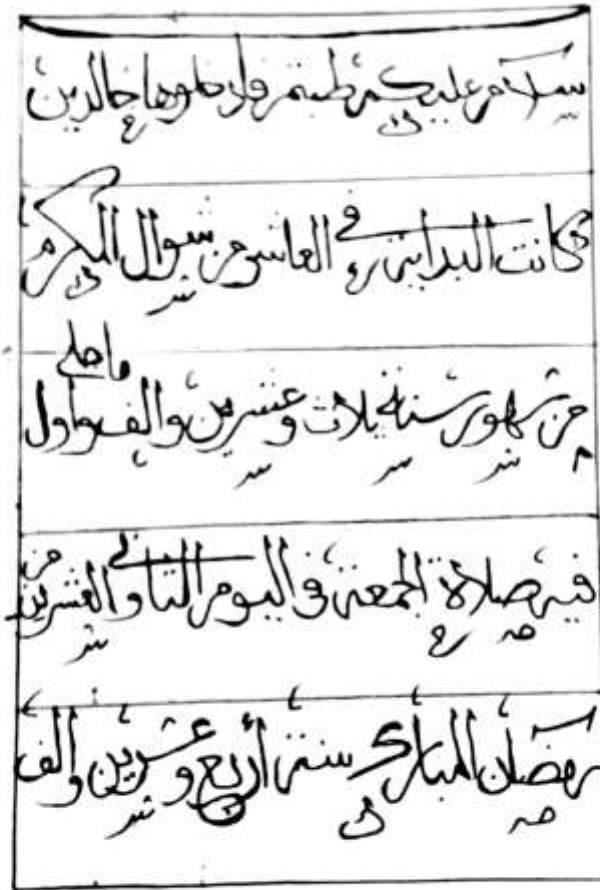 سلام عليكم طبتم فادخلوها خالدين
كانت البداية في العاشر من شوال المكرم
من شهور سنة ثلاث وعشرين وألف وأول ما صلي
فيه صلاة الجمعة في اليوم الثاني والعشرين من
رمضان المبارك سنة أربع وعشرين وألف